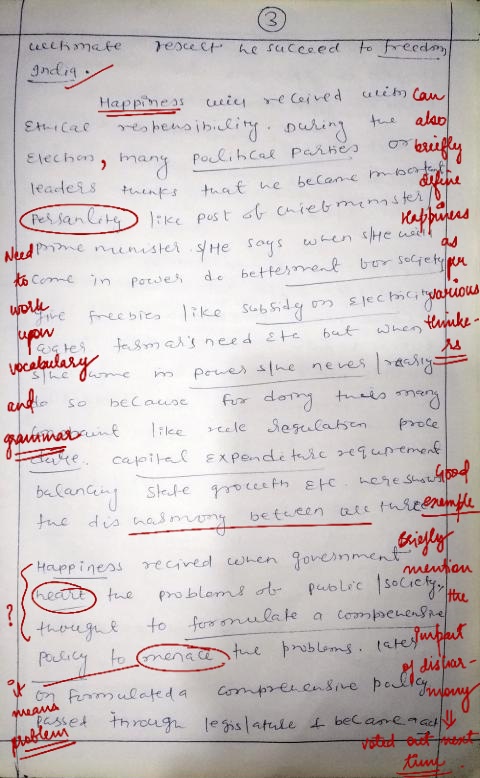 3
ultimate result he succeed to freedom
India.
Happiness will received with
Ethical responsibility. During the
Election, many political parties or
leaders thinks that he became important
Persanlity like post of chief minister/a
prime minister. s/He says when s/He will
come in power do betterment for society
give freebies like subsidy on electricity
water farmar's need Etc but when
s/he come in power s/he never / rearly
do so because for doing this many
constraint like rule regulation proce
dure. capital expenditure requirement
balancing state growth etc. here shows
the dis harmony between all three
Happiness recived when government
heart the problems of public / society.
thought to formulate a comprehensive
policy to menace the problems. later
on formulated a comprehensive policy
passed through legislature & became act
can
also
briefly
define
Happiness
as
per
various
thinke-
rs
Need
to
work
upon
vocabulary
and
grammar
Good
exemple
Briefly
mention
the
impact
of dishar-
mony
voted out next
time
?
it
means
problem